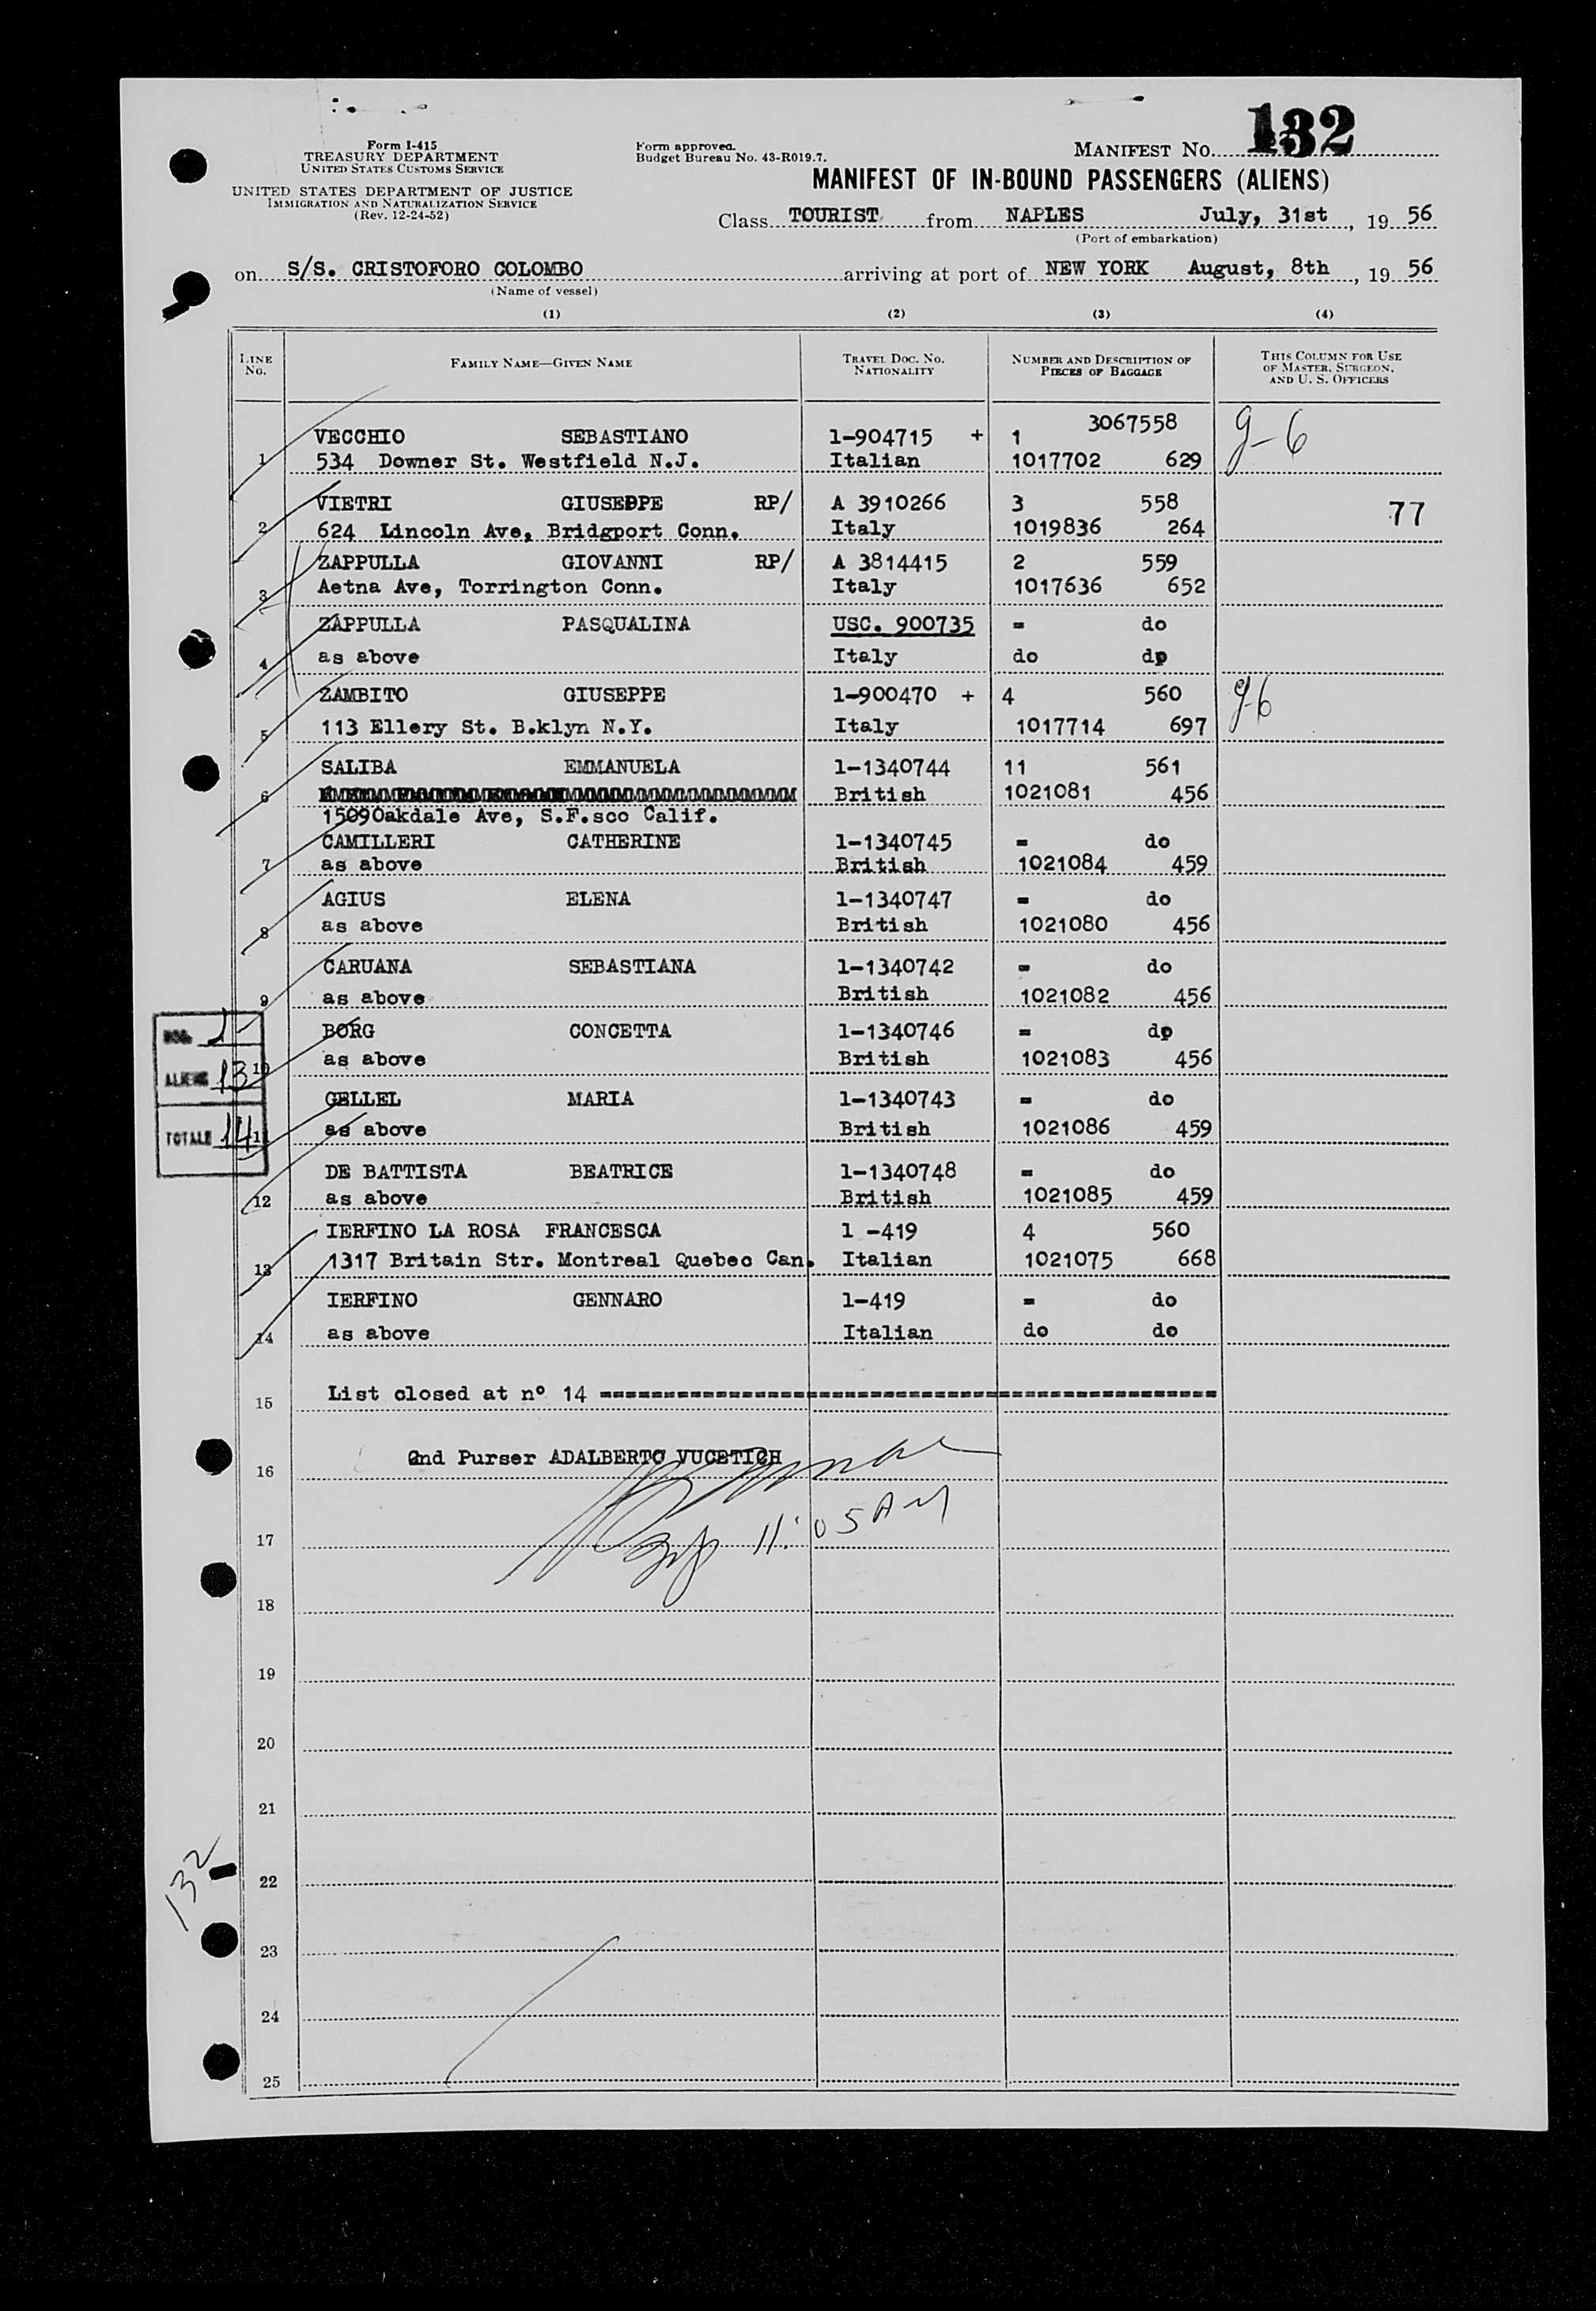 Form I-415
TREASURY DEPARTMENT
UNITED STATES CUSTOMS SERVICE
UNITED STATES DEPARTMENT OF JUSTICE
IMMIGRATION AND NATURALIZATION SERVICE
(Rev. 12-24-52)
Form approved.
Budget Bureau No. 43-R019.7.
MANIFEST NO. 132
MANIFEST OF IN-BOUND PASSENGERS (ALIENS)
Class TOURIST from NAPLES July, 31st, 19 56
(Port of embarkation)
on S/S. CRISTOFORO COLOMBO arriving at port of NEW YORK August, 8th, 19 56
(Name of vessel)
(1) (2) (3) (4)
LINE No. FAMILY NAME—GIVEN NAME TRAVEL DOC. NO. NATIONALITY NUMBER AND DESCRIPTION OF PIECES OF BAGGAGE THIS COLUMN FOR USE OF MASTER, SURGEON, AND U. S. OFFICERS
3067558
VECCHIO SEBASTIANO 1-904715 + 1 g-6
1 534 Downer St. Westfield N.J. Italian 1017702 629
VIETRI GIUSEPPE RP/ A 3910266 3 558 77
2 624 Lincoln Ave, Bridgport Conn. Italy 1019836 264
ZAPPULLA GIOVANNI RP/ A 3814415 2 559
3 Aetna Ave, Torrington Conn. Italy 1017636 652
ZAPPULLA PASQUALINA USC. 900735 = do
4 as above Italy do dp
ZAMBITO GIUSEPPE 1-900470 + 4 560 g-6
5 113 Ellery St. B.klyn N.Y. Italy 1017714 697
SALIBA EMMANUELA 1-1340744 11 561
6 British 1021081 456
1509Oakdale Ave, S.F.sco Calif.
CAMILLERI CATHERINE 1-1340745 = do
7 as above British 1021084 459
AGIUS ELENA 1-1340747 = do
8 as above British 1021080 456
CARUANA SEBASTIANA 1-1340742 = do
9 as above British 1021082 456
BORG CONCETTA 1-1340746 = dp
10 as above British 1021083 456
GELLEL MARIA 1-1340743 = do
11 as above British 1021086 459
DE BATTISTA BEATRICE 1-1340748 = do
12 as above British 1021085 459
IERFINO LA ROSA FRANCESCA 1 -419 4 560
13 1317 Britain Str. Montreal Quebec Can. Italian 1021075 668
IERFINO GENNARO 1-419 = do
14 as above Italian do do
ALIENS 13
TOTALE 14
15 List closed at nº 14 ================
16 2nd Purser ADALBERTO VUCETICH
17 11:05 AM
18
19
20
21
22
132
23
24
25